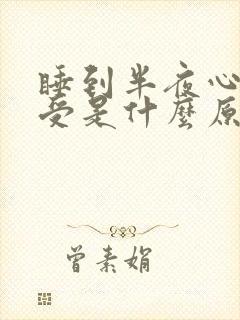 睡到半夜心
受是什麼原
曾素娟